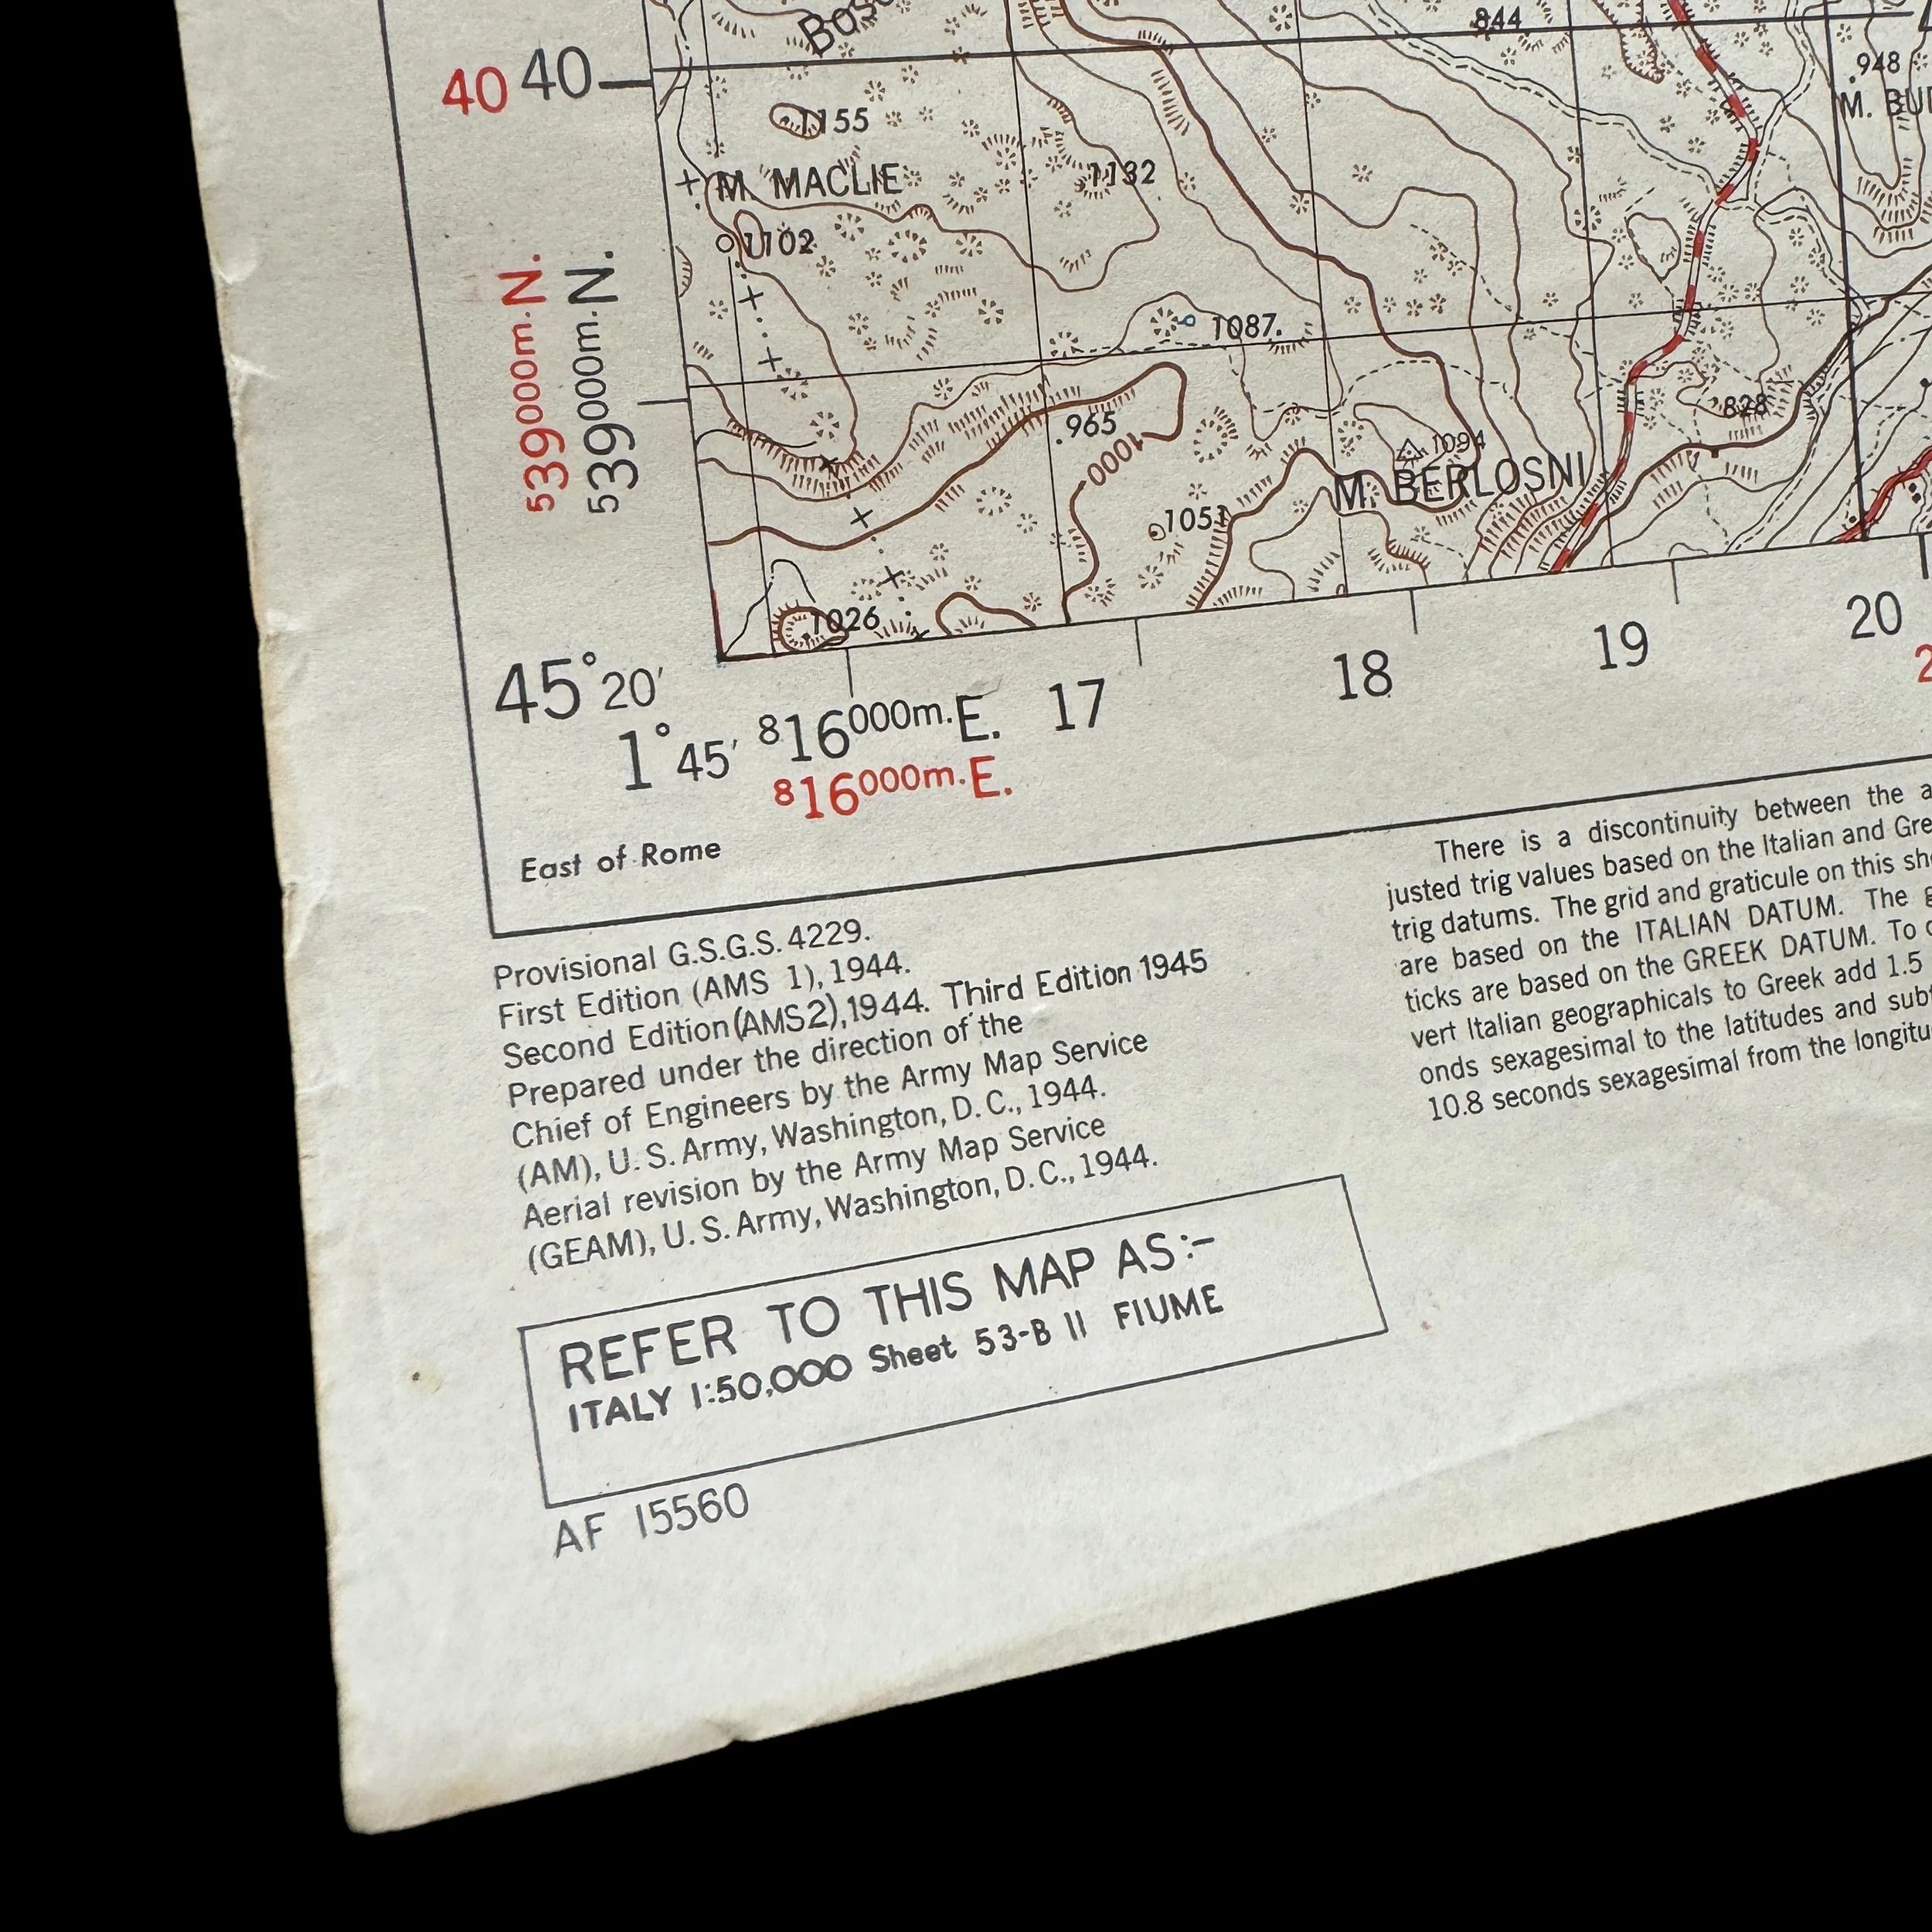 Bosc
844
948
40 40
M. BU
1155
M. MACLIE
1132
1102
539000m. N.
539000m. N.
1087.
828
.965
1000
1094
M. BERLOSNI
1051
1026
45° 20′
1° 45′ 816000m. E. 17 18 19 20
816000m. E.
2
East of Rome
Provisional G.S.G.S. 4229.
First Edition (AMS 1), 1944.
Second Edition (AMS2), 1944. Third Edition 1945
Prepared under the direction of the
Chief of Engineers by the Army Map Service
(AM), U. S. Army, Washington, D. C., 1944.
Aerial revision by the Army Map Service
(GEAM), U. S. Army, Washington, D. C., 1944.
There is a discontinuity between the a
justed trig values based on the Italian and Gre
trig datums. The grid and graticule on this sh
are based on the ITALIAN DATUM. The g
ticks are based on the GREEK DATUM. To c
vert Italian geographicals to Greek add 1.5
onds sexagesimal to the latitudes and subt
10.8 seconds sexagesimal from the longitu
REFER TO THIS MAP AS:-
ITALY 1:50,000 Sheet 53-B II FIUME
AF 15560